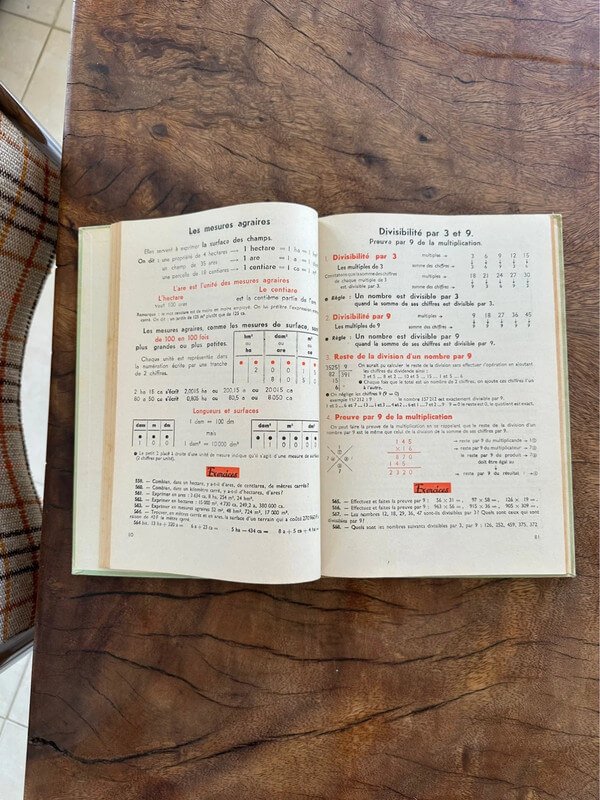 Les mesures agraires
Elles servent à exprimer la surface des champs.
On dit : une propriété de 4 hectares → 1 hectare = 1 ha
un champ de 35 ares → 1 are = 1 a
une parcelle de 18 centiares → 1 centiare = 1 ca
L'are est l'unité des mesures agraires
L'hectare Le centiare
vaut 100 ares est la centième partie de l'are
Les mesures agraires, comme les mesures de surface, sont
de 100 en 100 fois
plus grandes ou plus petites.
Chaque unité est représentée dans
la numération écrite par une tranche
de 2 chiffres.
hm² dam² m²
ou ou ou
ha are ca
2 ha 15 ca s'écrit 2,0015 ha ou 200,15 a ou 20 015 ca
80 a 50 ca s'écrit 0,805 ha ou 80,5 a ou 8 050 ca
Longueurs et surfaces
dam m dm
1 0 0
1 dam = 100 dm
mais
1 dam² = 10 000 dm²
dam² m² dm²
1 0 0 0 0
Le petit 2 placé à droite d'une unité de mesure indique qu'il s'agit d'une mesure de surface
(2 chiffres par unité).
Exercices
559. — Combien, dans un hectare, y a-t-il d'ares, de centiares, de mètres carrés?
560. — Combien, dans un kilomètre carré, y a-t-il d'hectares, d'ares?
563. — Exprimer en mesures agraires 32 m², 48 hm², 724 m², 17 000 m².
10
Divisibilité par 3 et 9.
Preuve par 9 de la multiplication.
1. Divisibilité par 3
multiples → 3 6 9 12 15
Les multiples de 3 somme des chiffres → 3 6 9 3 6
Constatons que la somme des chiffres multiples → 18 21 24 27 30
de chaque multiple de 3 somme des chiffres → 9 3 6 9 3
est divisible par 3.
Règle : Un nombre est divisible par 3
quand la somme de ses chiffres est divisible par 3.
2. Divisibilité par 9
multiples → 9 18 27 36 45
Les multiples de 9 somme des chiffres → 9 9 9 9 9
Règle : Un nombre est divisible par 9
quand la somme de ses chiffres est divisible par 9.
3. Reste de la division d'un nombre par 9
3525 9
82 391
15
6
On aurait pu calculer le reste de la division sans effectuer l'opération en ajoutant
les chiffres du dividende ainsi :
3 et 5 ... 8 et 2 ... 10 et 5 ... 15 ... 1 et 5 ... 6
Chaque fois que le total est un nombre de 2 chiffres, on ajoute ces chiffres l'un
à l'autre.
On néglige les chiffres 9 (9 = 0)
exemple 157 212 : 9 le nombre 157 212 est exactement divisible par 9
1 et 5 ... 6 et 7 ... 13 ... 1 et 3 ... 4 et 2 ... 6 et 1 ... 7 et 2 ... 9 = 0 le reste est 0, le quotient est exact.
4. Preuve par 9 de la multiplication
On peut faire la preuve de la multiplication en se rappelant que le reste de la division d'un
nombre par 9 est le même que celui de la division de la somme de ses chiffres par 9.
145
×16
870
145
2320
→ reste par 9 du multiplicande → 1
→ reste par 9 du multiplicateur → 7
→ reste par 9 du produit → 7
doit être égal au
→ reste par 9 du résultat → 7
Exercices
565. — Effectuez et faites la preuve par 9 : 56 × 31 = . 97 × 58 = . 126 × 19 = .
566. — Effectuez et faites la preuve par 9 : 963 × 56 = . 915 × 36 = . 905 × 309 = .
567. — Les nombres 12, 18, 29, 36, 47 sont-ils divisibles par 3? Quels sont ceux qui sont
divisibles par 9?
568. — Quels sont les nombres suivants divisibles par 3, par 9 : 126, 252, 459, 375, 372
81